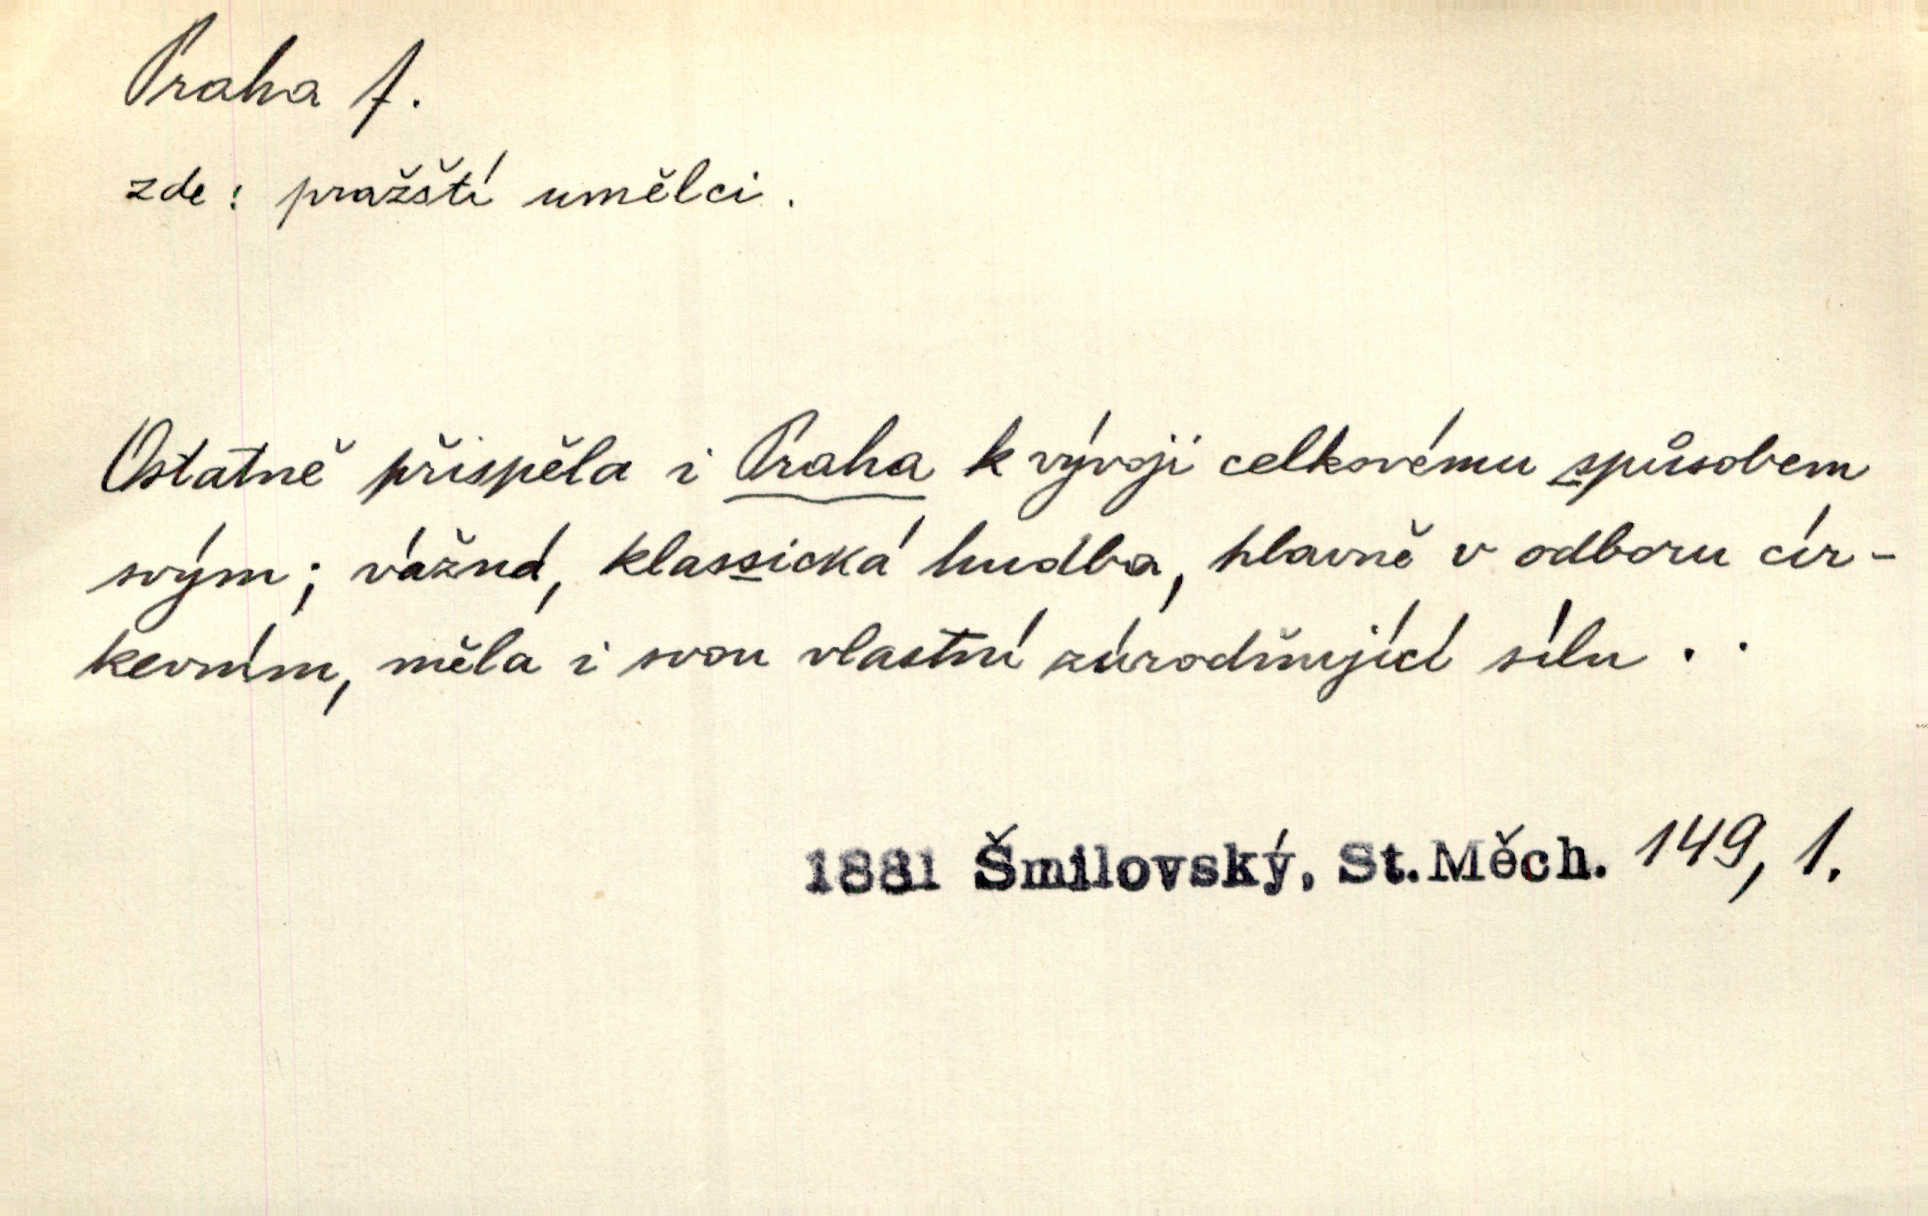 Praha f.
zde: pražští umělci.
Ostatně přispěla i Praha k vývoji celkovému spůsobem
svým; vážná, klassická hudba, hlavně v odboru cír-
kevním, měla i svou vlastní zúrodňující sílu . .
1881 Šmilovský, St.Měch. 149, 1.